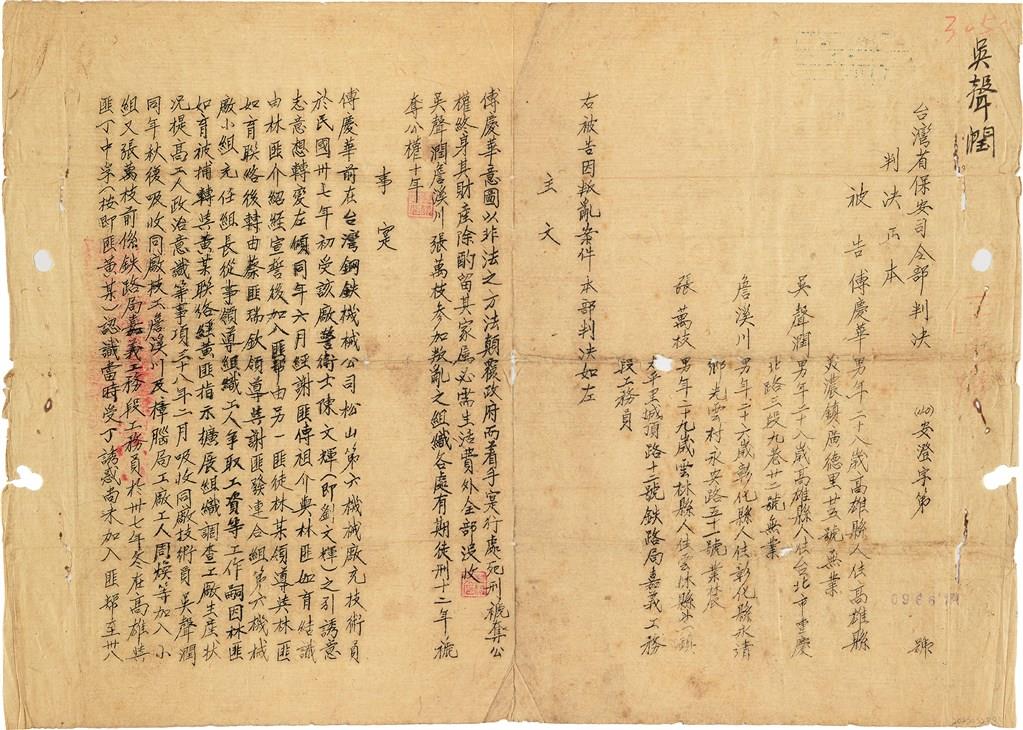 吳聲潤
台灣省保安司令部判決
(40)安澄字第 號
判決正本
被告 傅慶華 男年二十八歲高雄縣人住高雄縣
美濃鎮廣德里廿五號無業
吳聲潤 男年二十八歲高雄縣人住台北市重慶
北路三段九巷廿二號無業
詹溪川 男年二十六歲彰化縣人住彰化縣永靖
鄉光雲村永安路五十一號業農
張萬枝 男年二十九歲雲林縣人住雲林縣 鎮
太平里城頂路十二號鉄路局嘉義工務
段工務員
右被告因叛亂案件本部判決如左
主文
傅慶華意圖以非法之方法顛覆政府而着手实行處死刑褫奪公
權終身其財産除酌留其家屬必需生活費外全部没收
吳聲潤詹溪川張萬枝參加叛亂之組織各處有期徒刑十二年褫
奪公權十年
事实
傅慶華前在台灣鋼鉄機械公司松山第六機械廠充技術員
於民國卅七年初受該廠警衛士陳文輝(即劉文輝)之引誘意
志意想轉变左傾同年六月經謝匪傳祖介與林匪如育結識
由林匪介紹經宣誓後加入匪幫由另一匪徒林某領導與林匪
如育聯絡後轉由蔡匪瑞欽領導與謝匪發連合組第六機械
廠小組充任組長從事領導組織工人爭取工資等工作嗣因林匪
如育被捕轉與黄某聯絡經黄匪指示擴展組織調查工廠生産狀
況提高工人政治意識等事項三十八年二月吸收同廠技術員吳聲潤
同年秋後吸收同廠技工詹溪川及樟腦局工廠工人周煥等加入小
組又張萬枝前係鉄路局嘉義工務段工務員於卅七年冬在高雄與
匪丁中宇(按即匪黄某)認識當時受丁誘惑尚未加入匪幫至卅八